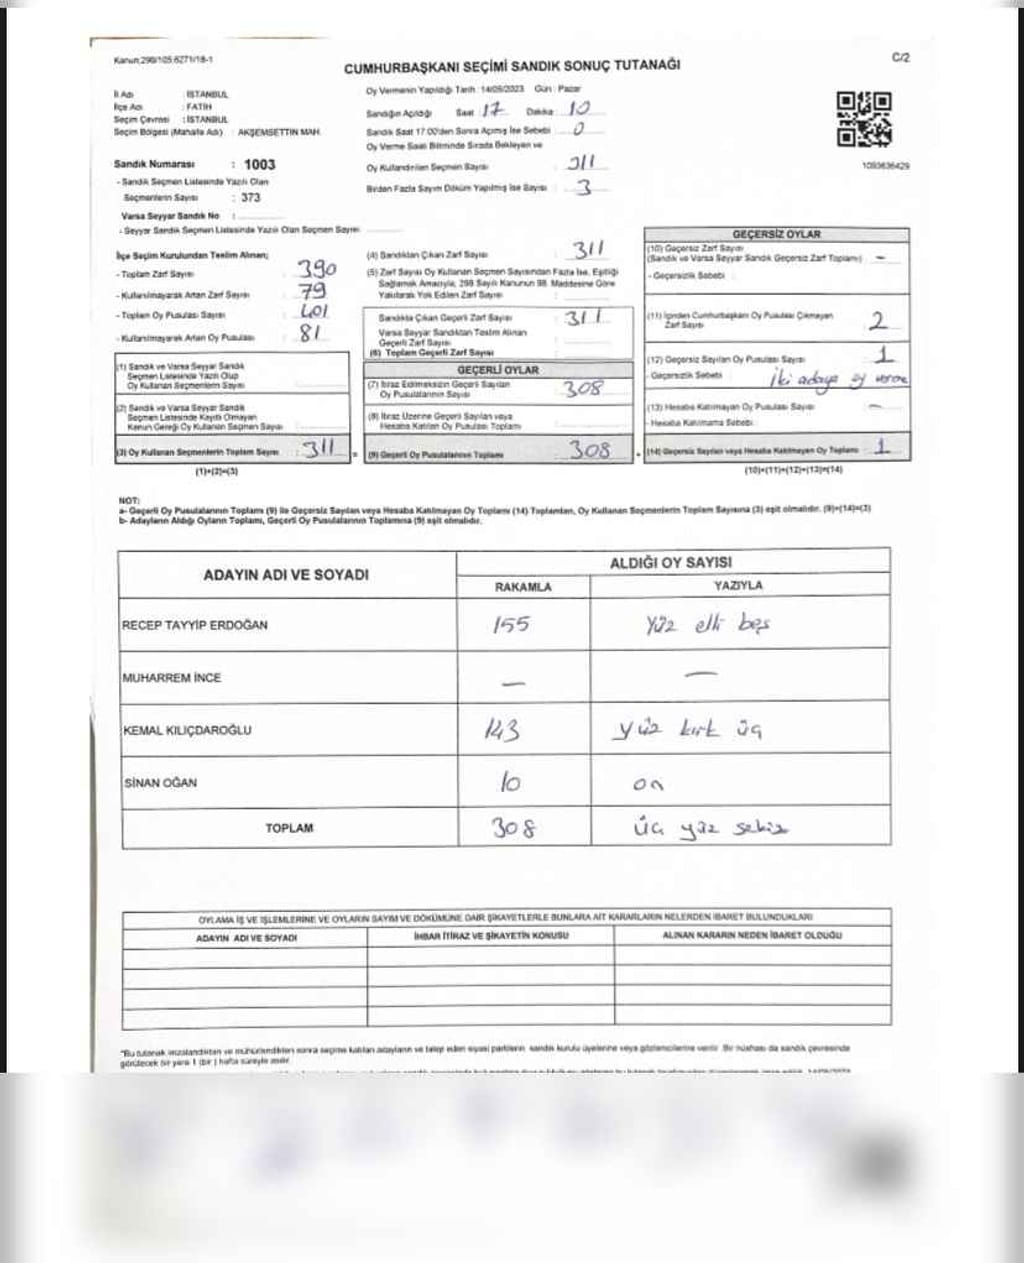 Kanun:298/105 6271/18-1
C/2
CUMHURBAŞKANI SEÇİMİ SANDIK SONUÇ TUTANAĞI
İl Adı : İSTANBUL
İlçe Adı : FATİH
Seçim Çevresi : İSTANBUL
Seçim Bölgesi (Mahalle Adı) : AKŞEMSETTİN MAH.
Sandık Numarası : 1003
- Sandık Seçmen Listesinde Yazılı Olan
Seçmenlerin Sayısı : 373
Varsa Seyyar Sandık No :
- Seyyar Sandık Seçmen Listesinde Yazılı Olan Seçmen Sayısı
Oy Vermenin Yapıldığı Tarih : 14/05/2023 Gün : Pazar
Sandığın Açıldığı Saat : 17 Dakika : 10
Sandık Saat 17.00'den Sonra Açılmış İse Sebebi : 0
Oy Verme Saati Bitiminde Sırada Bekleyen ve
Oy Kullandırılan Seçmen Sayısı : 311
Birden Fazla Sayım Döküm Yapılmış İse Sayısı : 3
1093636429
İlçe Seçim Kurulundan Teslim Alınan;
- Toplam Zarf Sayısı : 390
- Kullanılmayarak Artan Zarf Sayısı : 79
- Toplam Oy Pusulası Sayısı : 401
- Kullanılmayarak Artan Oy Pusulası : 81
(1) Sandık ve Varsa Seyyar Sandık
Seçmen Listesinde Yazılı Olup
Oy Kullanan Seçmenlerin Sayısı
(2) Sandık ve Varsa Seyyar Sandık
Seçmen Listesinde Kayıtlı Olmayan
Kanun Gereği Oy Kullanan Seçmen Sayısı
(3) Oy Kullanan Seçmenlerin Toplam Sayısı : 311
(1)+(2)=(3)
(4) Sandıktan Çıkan Zarf Sayısı : 311
(5) Zarf Sayısı Oy Kullanan Seçmen Sayısından Fazla İse, Eşitliği
Sağlamak Amacıyla, 298 Sayılı Kanunun 98. Maddesine Göre
Yakılarak Yok Edilen Zarf Sayısı
Sandıkta Çıkan Geçerli Zarf Sayısı : 311
Varsa Seyyar Sandıktan Teslim Alınan
Geçerli Zarf Sayısı
(6) Toplam Geçerli Zarf Sayısı
GEÇERLİ OYLAR
(7) İtiraz Edilmeksizin Geçerli Sayılan
Oy Pusulalarının Sayısı : 308
(8) İtiraz Üzerine Geçerli Sayılan veya
Hesaba Katılan Oy Pusulası Toplamı
(9) Geçerli Oy Pusulalarının Toplamı : 308
GEÇERSİZ OYLAR
(10) Geçersiz Zarf Sayısı
(Sandık ve Varsa Seyyar Sandık Geçersiz Zarf Toplamı) : -
- Geçersizlik Sebebi :
(11) İçinden Cumhurbaşkanı Oy Pusulası Çıkmayan
Zarf Sayısı 2
(12) Geçersiz Sayılan Oy Pusulası Sayısı : 1
- Geçersizlik Sebebi : İki adaya oy verme
(13) Hesaba Katılmayan Oy Pusulası Sayısı : -
- Hesaba Katılmama Sebebi :
(14) Geçersiz Sayılan veya Hesaba Katılmayan Oy Toplamı : 1
(10)+(11)+(12)+(13)=(14)
NOT:
a- Geçerli Oy Pusulalarının Toplamı (9) ile Geçersiz Sayılan veya Hesaba Katılmayan Oy Toplamı (14) Toplamları, Oy Kullanan Seçmenlerin Toplam Sayısına (3) eşit olmalıdır. (9)+(14)=(3)
b- Adayların Aldığı Oyların Toplamı, Geçerli Oy Pusulalarının Toplamına (9) eşit olmalıdır.
ADAYIN ADI VE SOYADI
ALDIĞI OY SAYISI
RAKAMLA YAZIYLA
RECEP TAYYİP ERDOĞAN 155 yüz elli beş
MUHARREM İNCE — —
KEMAL KILIÇDAROĞLU 143 yüz kırk üç
SİNAN OĞAN 10 on
TOPLAM 308 üç yüz sekiz
OYLAMA İŞ VE İŞLEMLERİNE VE OYLARIN SAYIM VE DÖKÜMÜNE DAİR ŞİKAYETLERLE BUNLARA AİT KARARLARIN NELERDEN İBARET BULUNDUKLARI
ADAYIN ADI VE SOYADI İHBAR İTİRAZ VE ŞİKAYETİN KONUSU ALINAN KARARIN NEDEN İBARET OLDUĞU
*Bu tutanak imzalandıktan ve mühürlendikten sonra seçime katılan adayların ve talep eden siyasi partilerin sandık kurulu üyelerine veya gözlemcilerine verilir. Bir nüshası da sandık çevresinde
görülecek bir yere 1 (bir) hafta süreyle asılır.